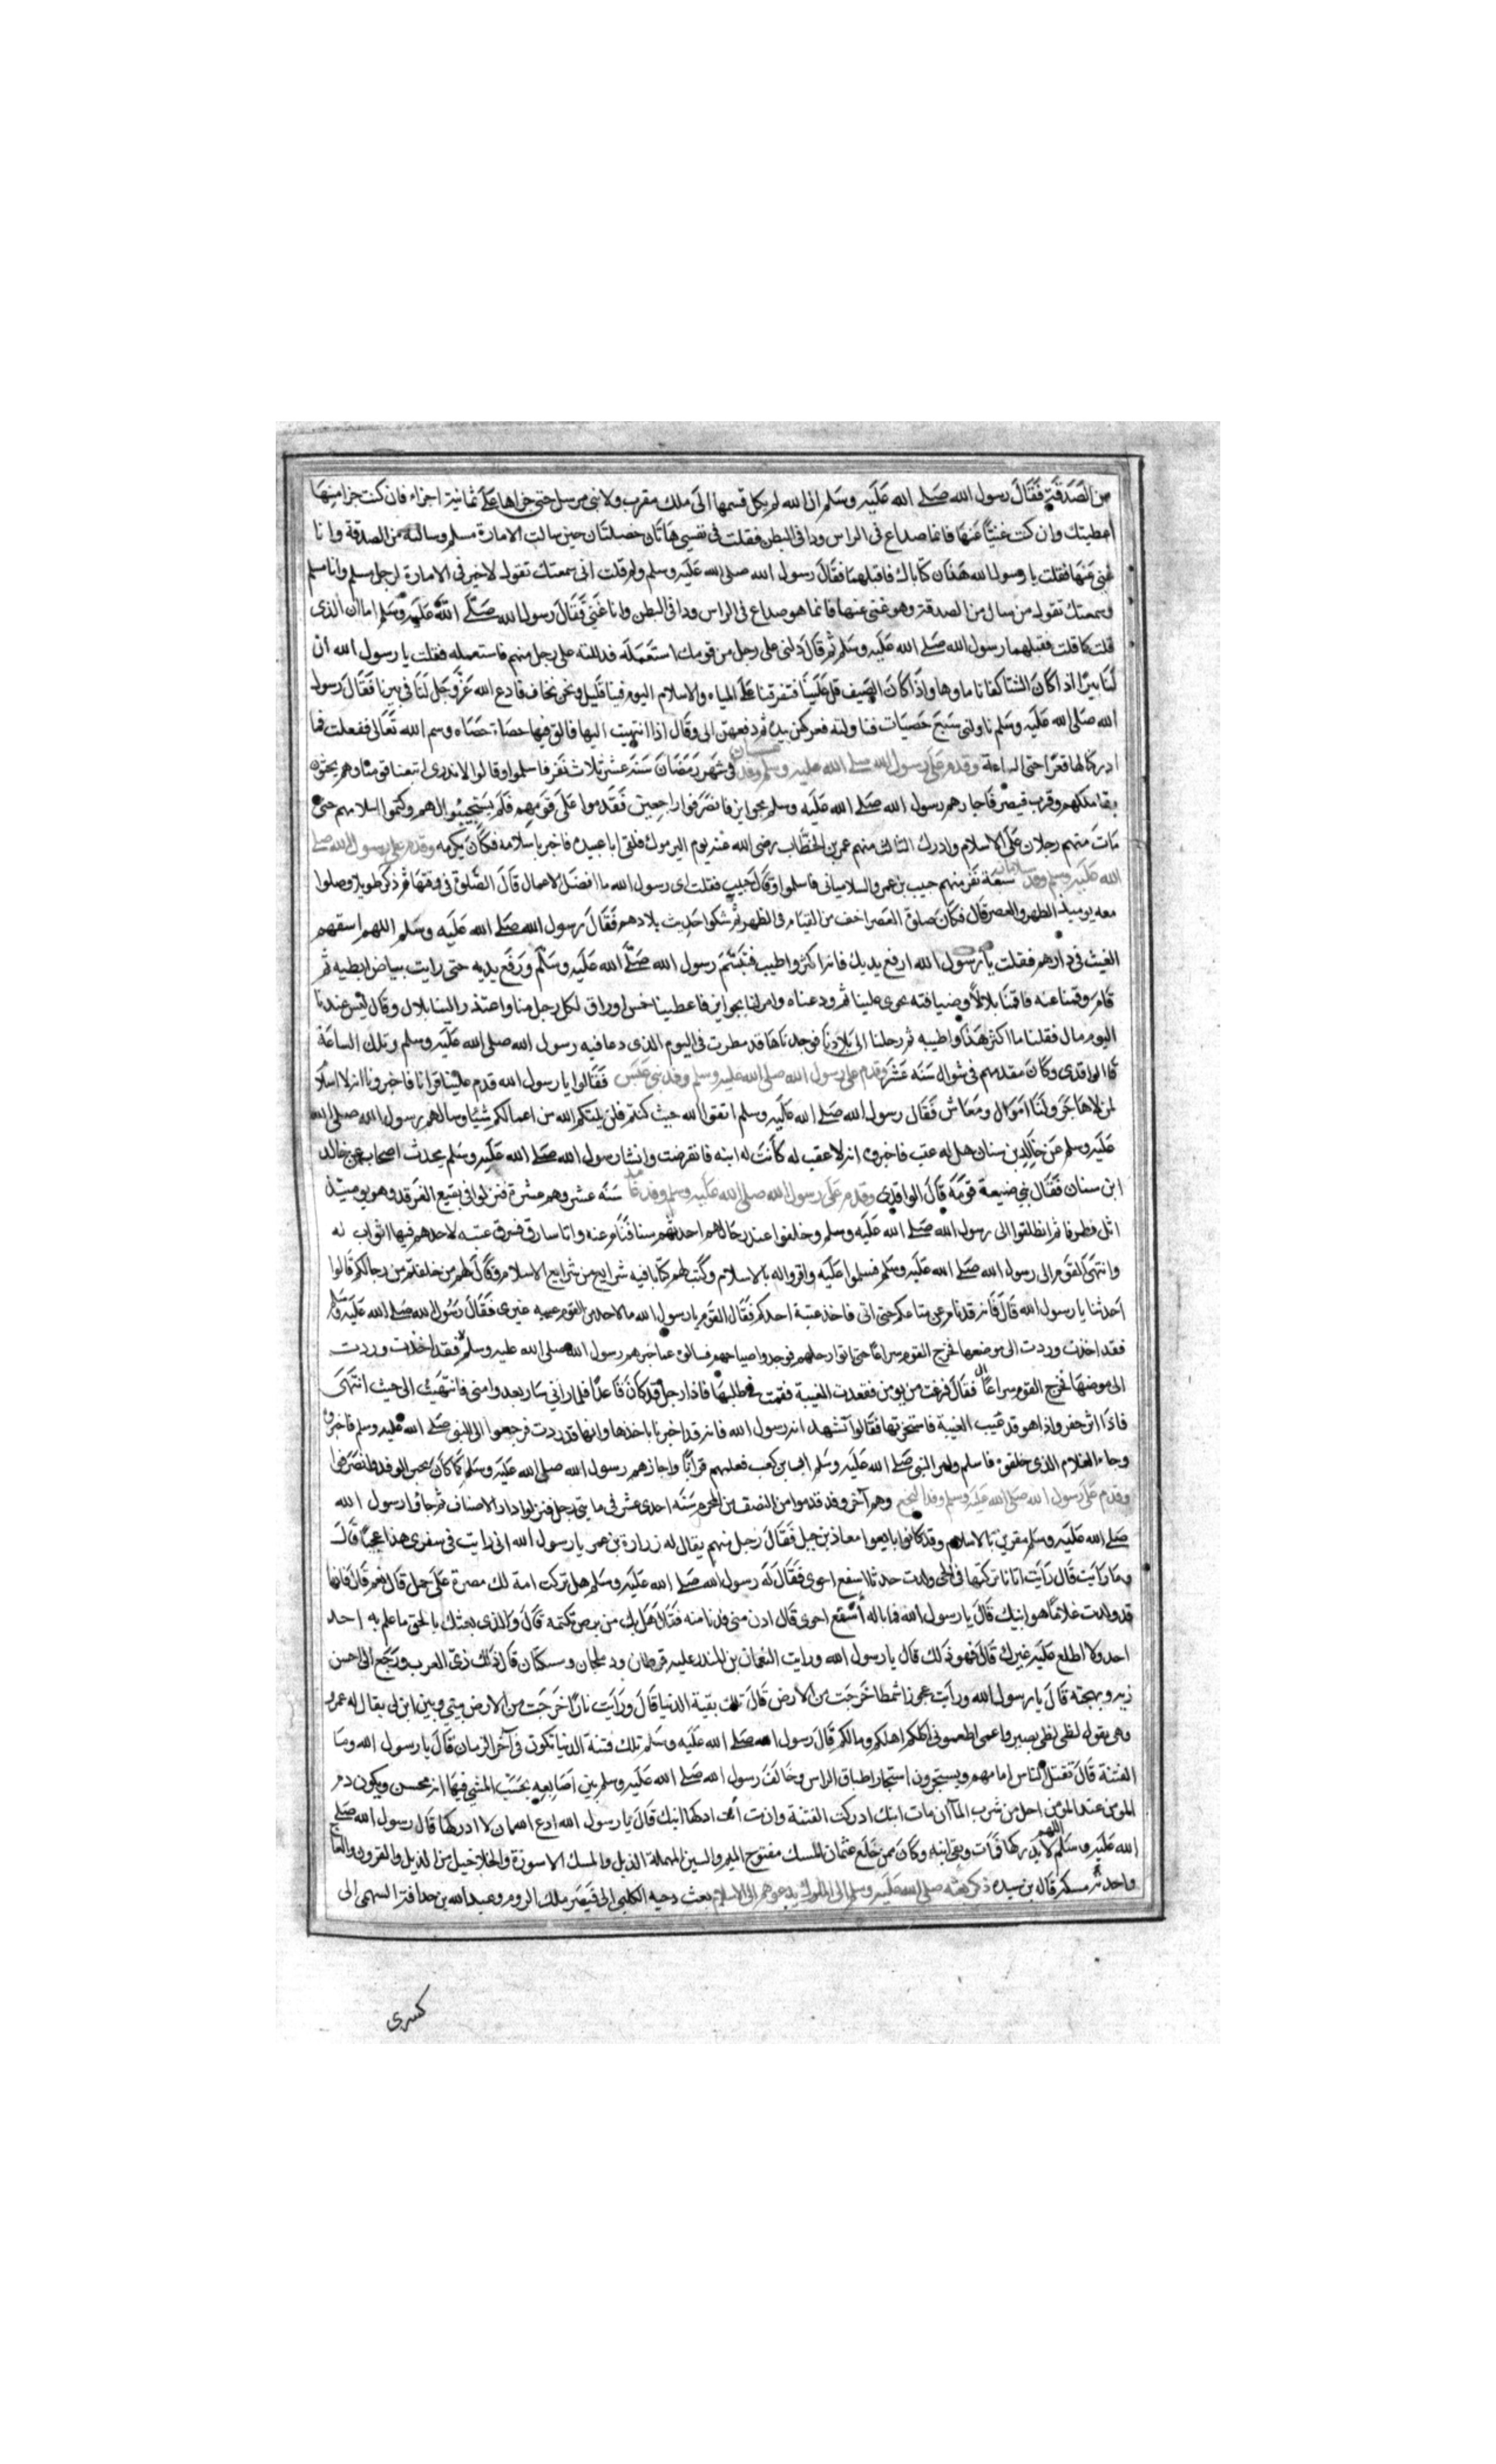 من الصدقة فقال رسول الله صلى الله عليه وسلم ان الله لم يكل قسمها الى ملك مقرب ولا نبي مرسل حتى جزاها على ثمانية اجزاء فان كنت جزا منها
اعطيتك وان كنت غنيا عنها فانما صداع في الراس ودا في البطن فقلت في نفسي هاتان خصلتان حين سالت الامارة مسلم وسالته من الصدقة وانا
غني عنها فقلت يا رسول الله هذان كتاباك فاقبلهما فقال رسول الله صلى الله عليه وسلم ولم قلت اني سمعتك تقول لا خير في الامارة لرجل مسلم وانا مسلم
وسمعتك تقول من سال من الصدقة وهو غني عنها فانما هو صداع في الراس ودا في البطن وانا غني فقال رسول الله صلى الله عليه وسلم اما ان الذي
قلت كما قلت فقبلهما رسول الله صلى الله عليه وسلم ثم قال دلني على رجل من قومك استعمله فدللته على رجل منهم فاستعمله فقلت يا رسول الله ان
لنا بيرا اذا كان الشتا كفانا ماوها واذا كان الصيف قل علينا فتفرقنا على المياه والاسلام اليوم فينا قليل ونحن نخاف فادع الله عز وجل لنا في بيرنا فقال رسول
الله صلى الله عليه وسلم ناولني سبع حصيات فناولته فعركهن بيده ثم دفعهن الي وقال اذا انتهيت اليها فالق فيها حصاة حصاه وسم الله تعالى ففعلت فما
ادركنا لها قعرا حتى الساعة وقدم على رسول الله صلى الله عليه وسلم وفد غسان في شهر رمضان سنة عشر ثلاث نفر فاسلموا وقالوا لا ندري ايتبعنا قومنا وهم يحبون
بقا ملكهم وقرب قيصر فاجازهم رسول الله صلى الله عليه وسلم بجوايز فانصرفوا راجعين فقدموا على قومهم فلم يستجيبوا لهم وكتموا اسلامهم حتى
مات منهم رجلان على الاسلام وادرك الثالث منهم عمر بن الخطاب رضي الله عنه يوم اليرموك فلقي ابا عبيده فاخبر باسلامه فكان يكرمه وقدم على رسول الله صلى
الله عليه وسلم وفد سلامان سبعة نفر منهم حبيب بن عمرو السلاماني فاسلموا وقال حبيب فقلت اي رسول الله ما افضل الاعمال قال الصلوة في وقتها ثم ذكر طويلا وصلوا
معه يوميذ الظهر والعصر قال فكان صلوة العصر اخف من القيام في الظهر ثم شكوا جدب بلادهم فقال رسول الله صلى الله عليه وسلم اللهم اسقهم
الغيث في دارهم فقلت يا رسول الله ارفع يديك فانه اكثر واطيب فتبسم رسول الله صلى الله عليه وسلم ورفع يديه حتى رايت بياض ابطيه ثم
قام وقمنا عنه فاقمنا ثلاثا وضيافته تجري علينا ثم ودعناه وامر لنا بجوايز فاعطينا خمس اوراق لكل رجل منا واعتذر الينا بلال وقال ليس عندنا
اليوم مال فقلنا ما اكثر هذا واطيبه ثم رحلنا الى بلادنا فوجدناها قد مطرت في اليوم الذي دعا فيه رسول الله صلى الله عليه وسلم وتلك الساعة
قال الواقدي وكان مقدمهم في شوال سنة عشر وقدم على رسول الله صلى الله عليه وسلم وفد بني عبس فقالوا يا رسول الله قدم علينا قرانا فاخبرونا انه لا اسلام
لمن لا هاجر ولنا اموال ومعاش فقال رسول الله صلى الله عليه وسلم اتقوا الله حيث كنتم فلن يلتكم الله من اعمالكم شيا وسالهم رسول الله صلى الله
عليه وسلم عن خالد بن سنان هل له عقب فاخبروه انه لا عقب له كانت له ابنه فانقرضت وانشا رسول الله صلى الله عليه وسلم يحدث اصحابه عن خالد
ابن سنان فقال نبي ضيعة قومه قال الواقدي وقدم على رسول الله صلى الله عليه وسلم وفد غامد سنة عشر وهم عشرة فنزلوا في بقيع الغرقد وهو يوميذ
اثل وطرفا ثم انطلقوا الى رسول الله صلى الله عليه وسلم وخلفوا عند رحالهم احدثهم سنا فنام عنه واتا سارق فسرق عيبة لاحدهم فيها اثواب له
وانتهى القوم الى رسول الله صلى الله عليه وسلم فسلموا عليه واقروا له بالاسلام وكتب لهم كتابا فيه شرايع من شرايع الاسلام وقال لهم من خلفتم من رحالكم قالوا
احدثنا يا رسول الله قال فانه قد نام عن متاعكم حتى اتى فاخذ عيبة احدكم فقال القوم يا رسول الله ما لاحد من القوم عيبه غيري فقال رسول الله صلى الله عليه وسلم
فقد اخذت وردت الى موضعها فخرج القوم سراعا حتى اتوا رحلهم فوجدوا صاحبهم فسالوه عما خبرهم رسول الله صلى الله عليه وسلم فقد اخذت وردت
الى موضعها فخرج القوم سراعا الى فقال فزعت من نومي ففقدت العيبة فقمت في طلبها فاذا رجل قد كان قاعدا فلما راني سار يعدو امني فانتهيت الى حيث انتهى
فاذا اثر حفر واذا هو قد غيب العيبة فاستخرجتها فقالوا نشهد انه رسول الله فانه قد اخبرنا باخذها وانها قد ردت فرجعوا الى النبي صلى الله عليه وسلم فاخبروه
وجاء الغلام الذي خلفوه فاسلم وامر النبي صلى الله عليه وسلم ابي بن كعب فعلمهم قرانا واجازهم رسول الله صلى الله عليه وسلم كما كان يجيز الوفد وانصرفوا
وقدم على رسول الله صلى الله عليه وسلم وفد النخع وهم آخر وفد قدموا من النصف من المحرم سنة احدى عشر في مايتي رجل فنزلوا دار الاضياف ثم جاوا رسول الله
صلى الله عليه وسلم مقرين بالاسلام وقد كانوا بايعوا معاذ بن جبل فقال رجل منهم يقال له زرارة بن عمر يا رسول الله اني رايت في سفري هذا عجبا قال
وما رايت قال رايت اتانا تركتها في الحي ولدت جديا اسفع احوى فقال له رسول الله صلى الله عليه وسلم هل تركت امة لك مصرة على حمل قال نعم قال فانها
قد ولدت غلاما هو ابنك قال يا رسول الله فما باله اسقع احوى قال ادن مني فدنا منه فقال هل بك من برص تكتمه قال والذي بعثك بالحق ما علم به احد
احد ولا اطلع عليه غيرك قال فهو ذلك قال يا رسول الله ورايت النعمان بن المنذر عليه قرطان ودملجان ومسكتان قال ذلك زي العرب ورجع الى احسن
زيه وبهجته قال يا رسول الله ورايت عجوزا شمطا خرجت من الارض قال تلك بقية الدنيا قال ورايت نارا خرجت من الارض بيني وبين ابن لي يقال له عمرو
وهي تقول لظى لظى بصير واعمى اطعموني اكلكم اهلكم ومالكم قال رسول الله صلى الله عليه وسلم تلك فتنة الدنيا تكون في آخر الزمان قال يا رسول الله وما
الفتنة قال تقتل الناس امامهم ويستجرون استجار اطباق الراس وخالف رسول الله صلى الله عليه وسلم بين اصابعه يحسب المسي فيها انه محسن ويكون دم
المومن عند المومن احل من شرب الما ان مات ابنك ادركت الفتنة وان ت انت ادركها ابنك قال يا رسول الله ادع الله ان لا ادركها قال رسول الله صلى
الله عليه وسلم اللهم لا يدركها فمات وبقي ابنه وكان ممن خلع عثمان المسك مفتوح الميم والسين المهملة الذبل والمسك الاسورة والخلاخيل من الذبل والقرون والعاج
واحدته مسكه قاله بن سيده ذكر بعثه صلى الله عليه وسلم الى الملوك يدعوهم الى الاسلام بعث دحيه الكلبي الى قيصر ملك الروم وعبد الله بن حذافة السهمي الى
كسرى